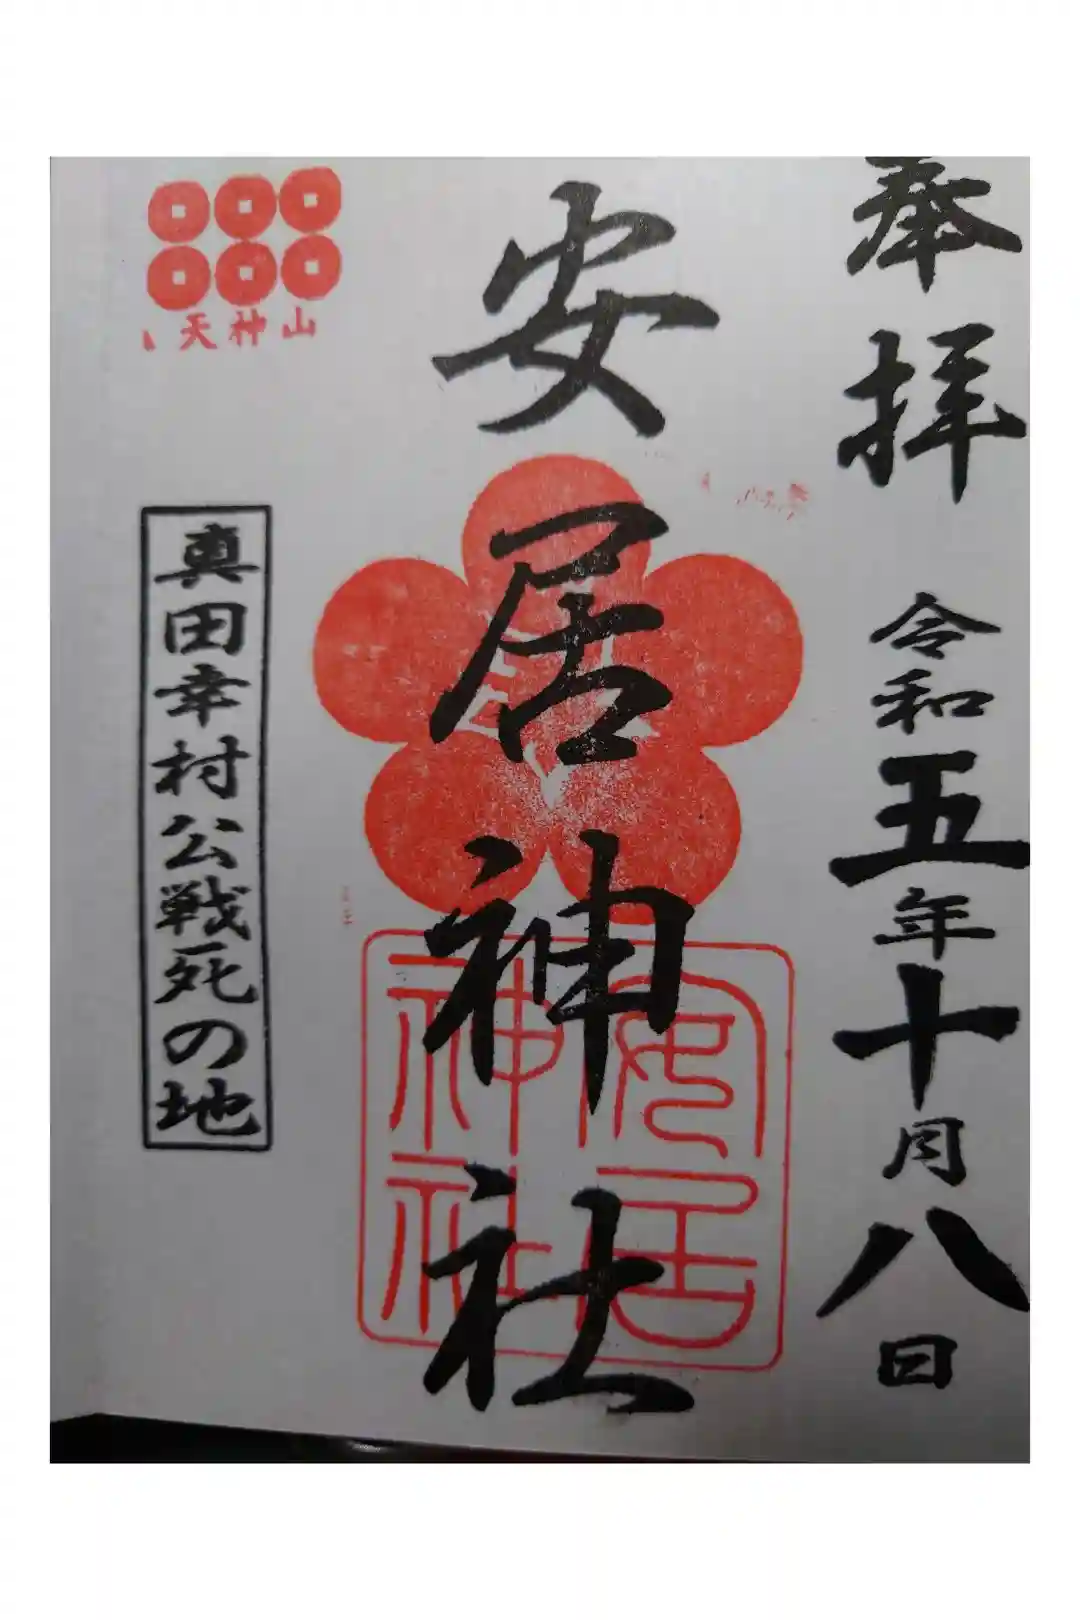 奉拝
令和五年十月八日
安居神社
安居
神社
天神山
真田幸村公戦死の地